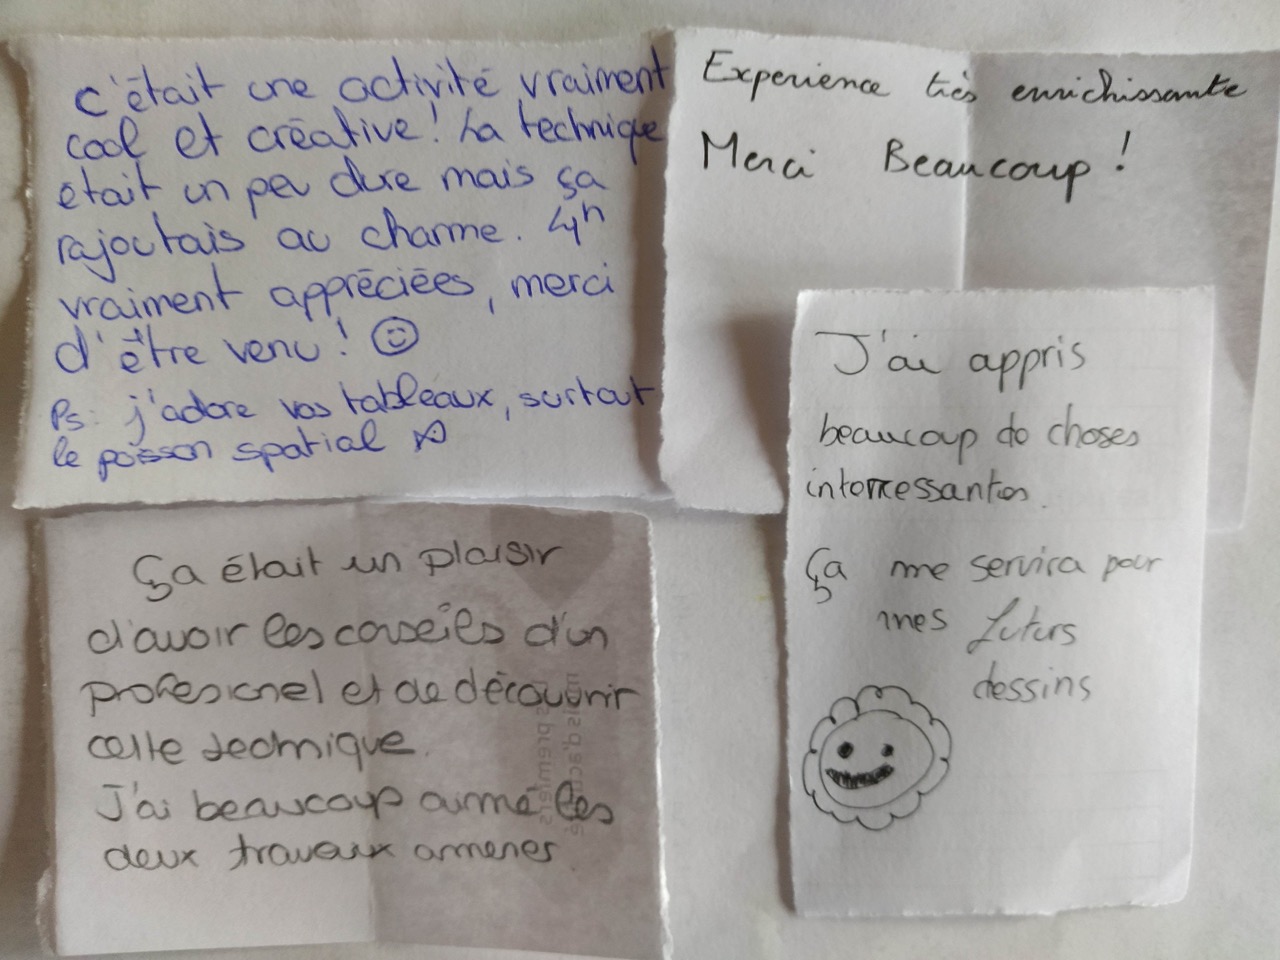 c'était une activité vraiment
cool et créative! La technique
etait un peu dure mais ça
rajoutais au charme. 4h
vraiment appréciées, merci
d'être venu! ☺
Ps: j'adore vos tableaux, surtout
le poisson spatial
Experience très enrichissante
Merci Beaucoup!
J'ai appris
beaucoup de choses
interressantes.
Ça me servira pour
mes futurs
dessins
Ça était un plaisir
d'avoir les conseils d'un
profesionel et de découvrir
cette technique.
J'ai beaucoup aimé les
deux travaux amenes.